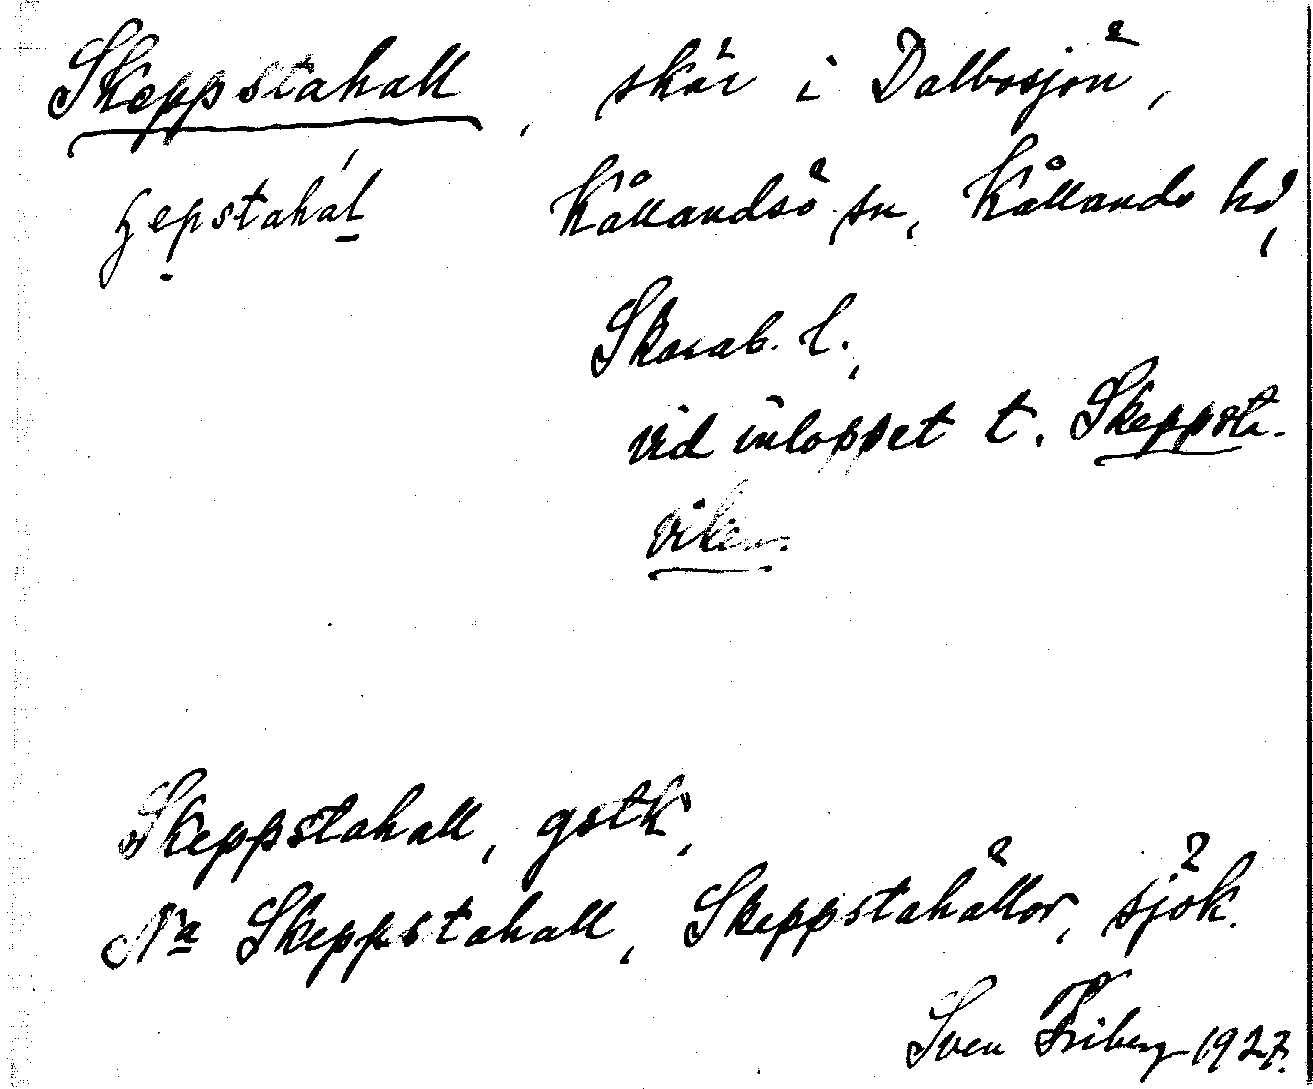 Skeppstahall, skär i Dalbosjön,
Kållandsö sn, Kållands hd,
Skarab. l.,
vid inloppet t. Skeppsta-
viken.
Skeppstahall, gstk,
Na Skeppstahall, Skeppstahällor, sjök.
Sven Friberg 1927.